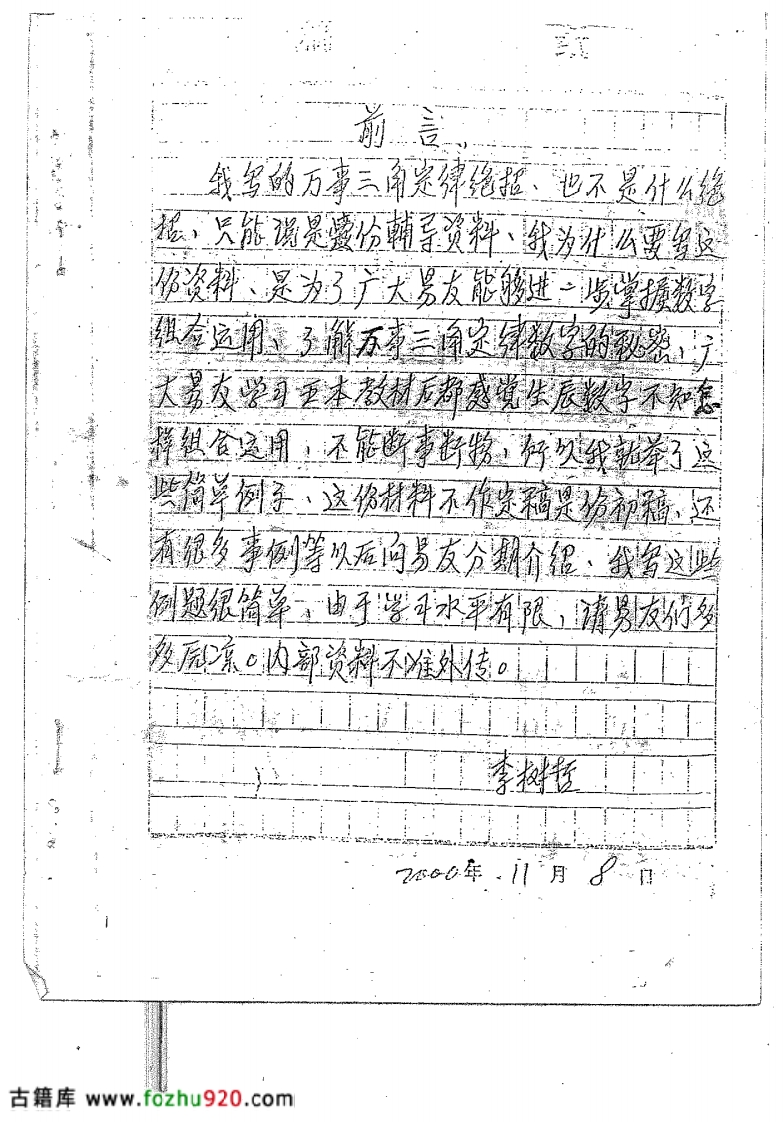 前言
我写的万事三角定律绝招、也不是什么绝
招、只能说是 份輔导资料、我为什么要写这
份资料、是为了广大易友能够进一步掌握数字
组合运用、了解万事三角定律数字的秘密、广
大易友学习 本教材后都感觉生辰数字不知怎
样组合运用，不能断事断物，所以我就举了这
些简单例子、这份材料不作定稿是份初稿、还
有很多事例等以后向易友分期介绍、我写这些
例题很简单、由于学习水平有限，请易友们多
多 凉。内部资料不准外传。
李树哲
2000年11月8日
古籍库 www.fozhu920.com